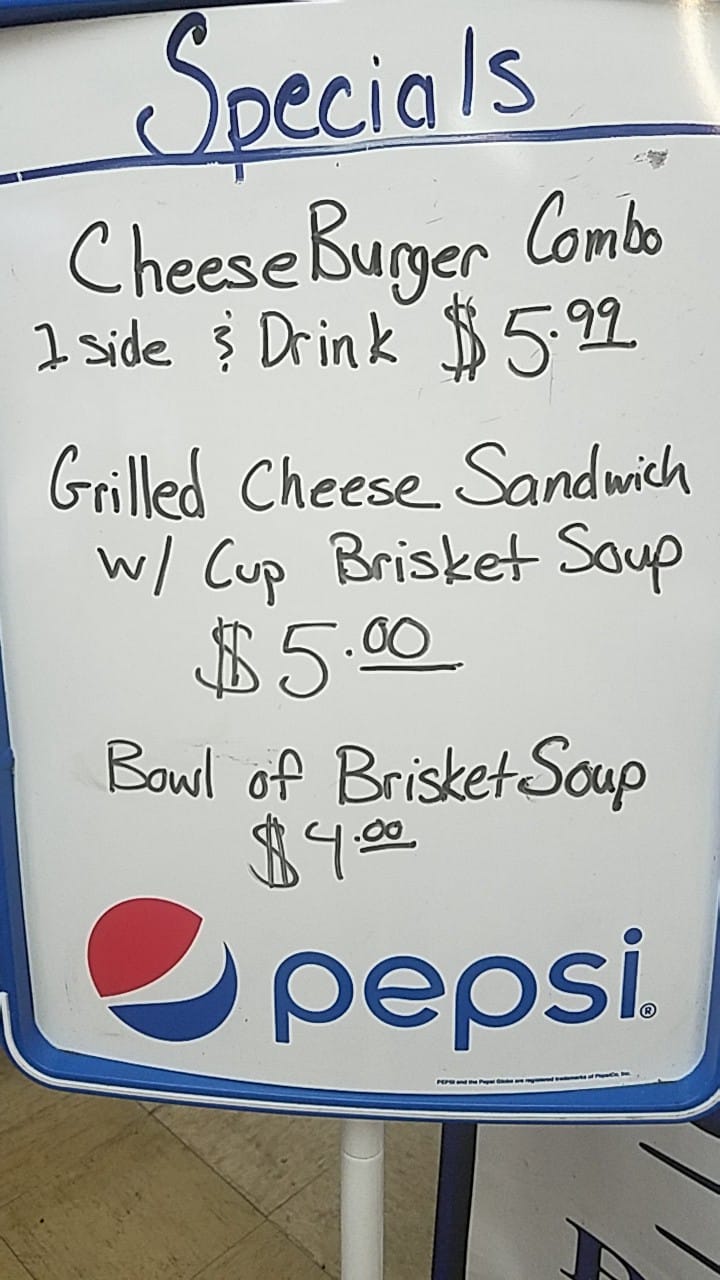 Specials
CheeseBurger Combo
1 side & Drink $5.99
Grilled Cheese Sandwich
w/ Cup Brisket Soup
$5.00
Bowl of Brisket Soup
$4.00
pepsi®
PEPSI and the Pepsi Globe are registered trademarks of PepsiCo, Inc.